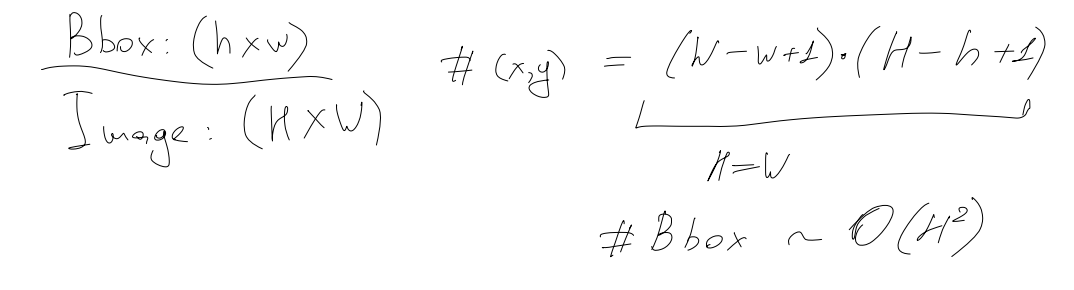 Bbox: (h×w)
Image: (H×W)
# (x,y) = (W-w+1)·(H-h+1)
H=W
# Bbox ~ O(H²)